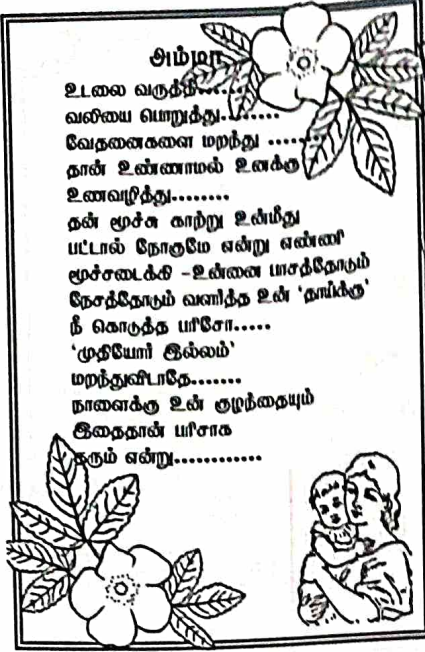 அம்மா
உடலை வருத்தி.......
வலியை பொறுத்து.........
வேதனைகளை மறந்து ........
தான் உண்ணாமல் உனக்கு
உணவழித்து........
தன் மூச்சு காற்று உன்மீது
பட்டால் நோகுமே என்று எண்ணி
மூச்சடைக்கி -உன்னை பாசத்தோடும்
நேசத்தோடும் வளர்த்த உன் ‘தாய்க்கு’
நீ கொடுத்த பரிசோ.....
‘முதியோர் இல்லம்’
மறந்துவிடாதே.......
நாளைக்கு உன் குழந்தையும்
இதைதான் பரிசாக
தரும் என்று............